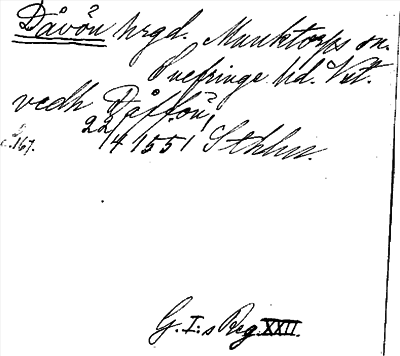 Dåvön hrgd. Munktorps sn.
Snefringe hd. Vst.
vedh Dåffön,
22/4 1551 Sthlm.
s. 167.
G. I:s Reg. XXII.